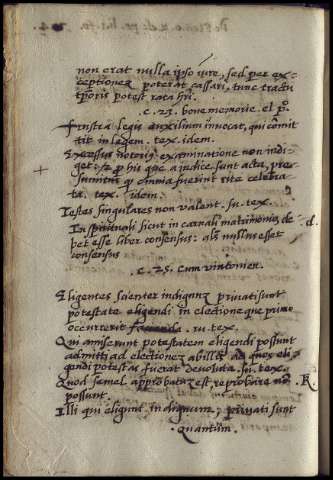 non erat nulla ipso iure, sed per ex-
ceptionem poterat cassari, tunc tractu
tp̄oris potest rata hr̄i.
.c. 23. bone memorie. el p.º
frustra legis auxiliũ invocat, qui cõmit
tit in legem. tex. idem.
Excessus notorius examinatione non indi-
get: & p̃ his que a iudice. sunt acta, pre-
sumitur q̃ omnia fuerint rite celebra-
ta. tex. idem.
Testes singulares non valent. su. tex.
In spirituali sicut in carnali matrimonio, de-
bet esse liber consensus: als̃ nullus esset
consensus
d.
.c. 25. Cum vintonien.
Eligentes scienter indignum privati sunt
potestate eligendi in electione que primo
occurrerit . su. tex.
Qui amiserunt potestatem eligendi possunt
admitti ad electionem abilles ad ques eli
gendi potestas fuerat devoluta. su. tex.
Quod semel approbatum est reprobare nõ
possunt.
R.
Illi qui eligunt indignum, privati sunt
quantũm.